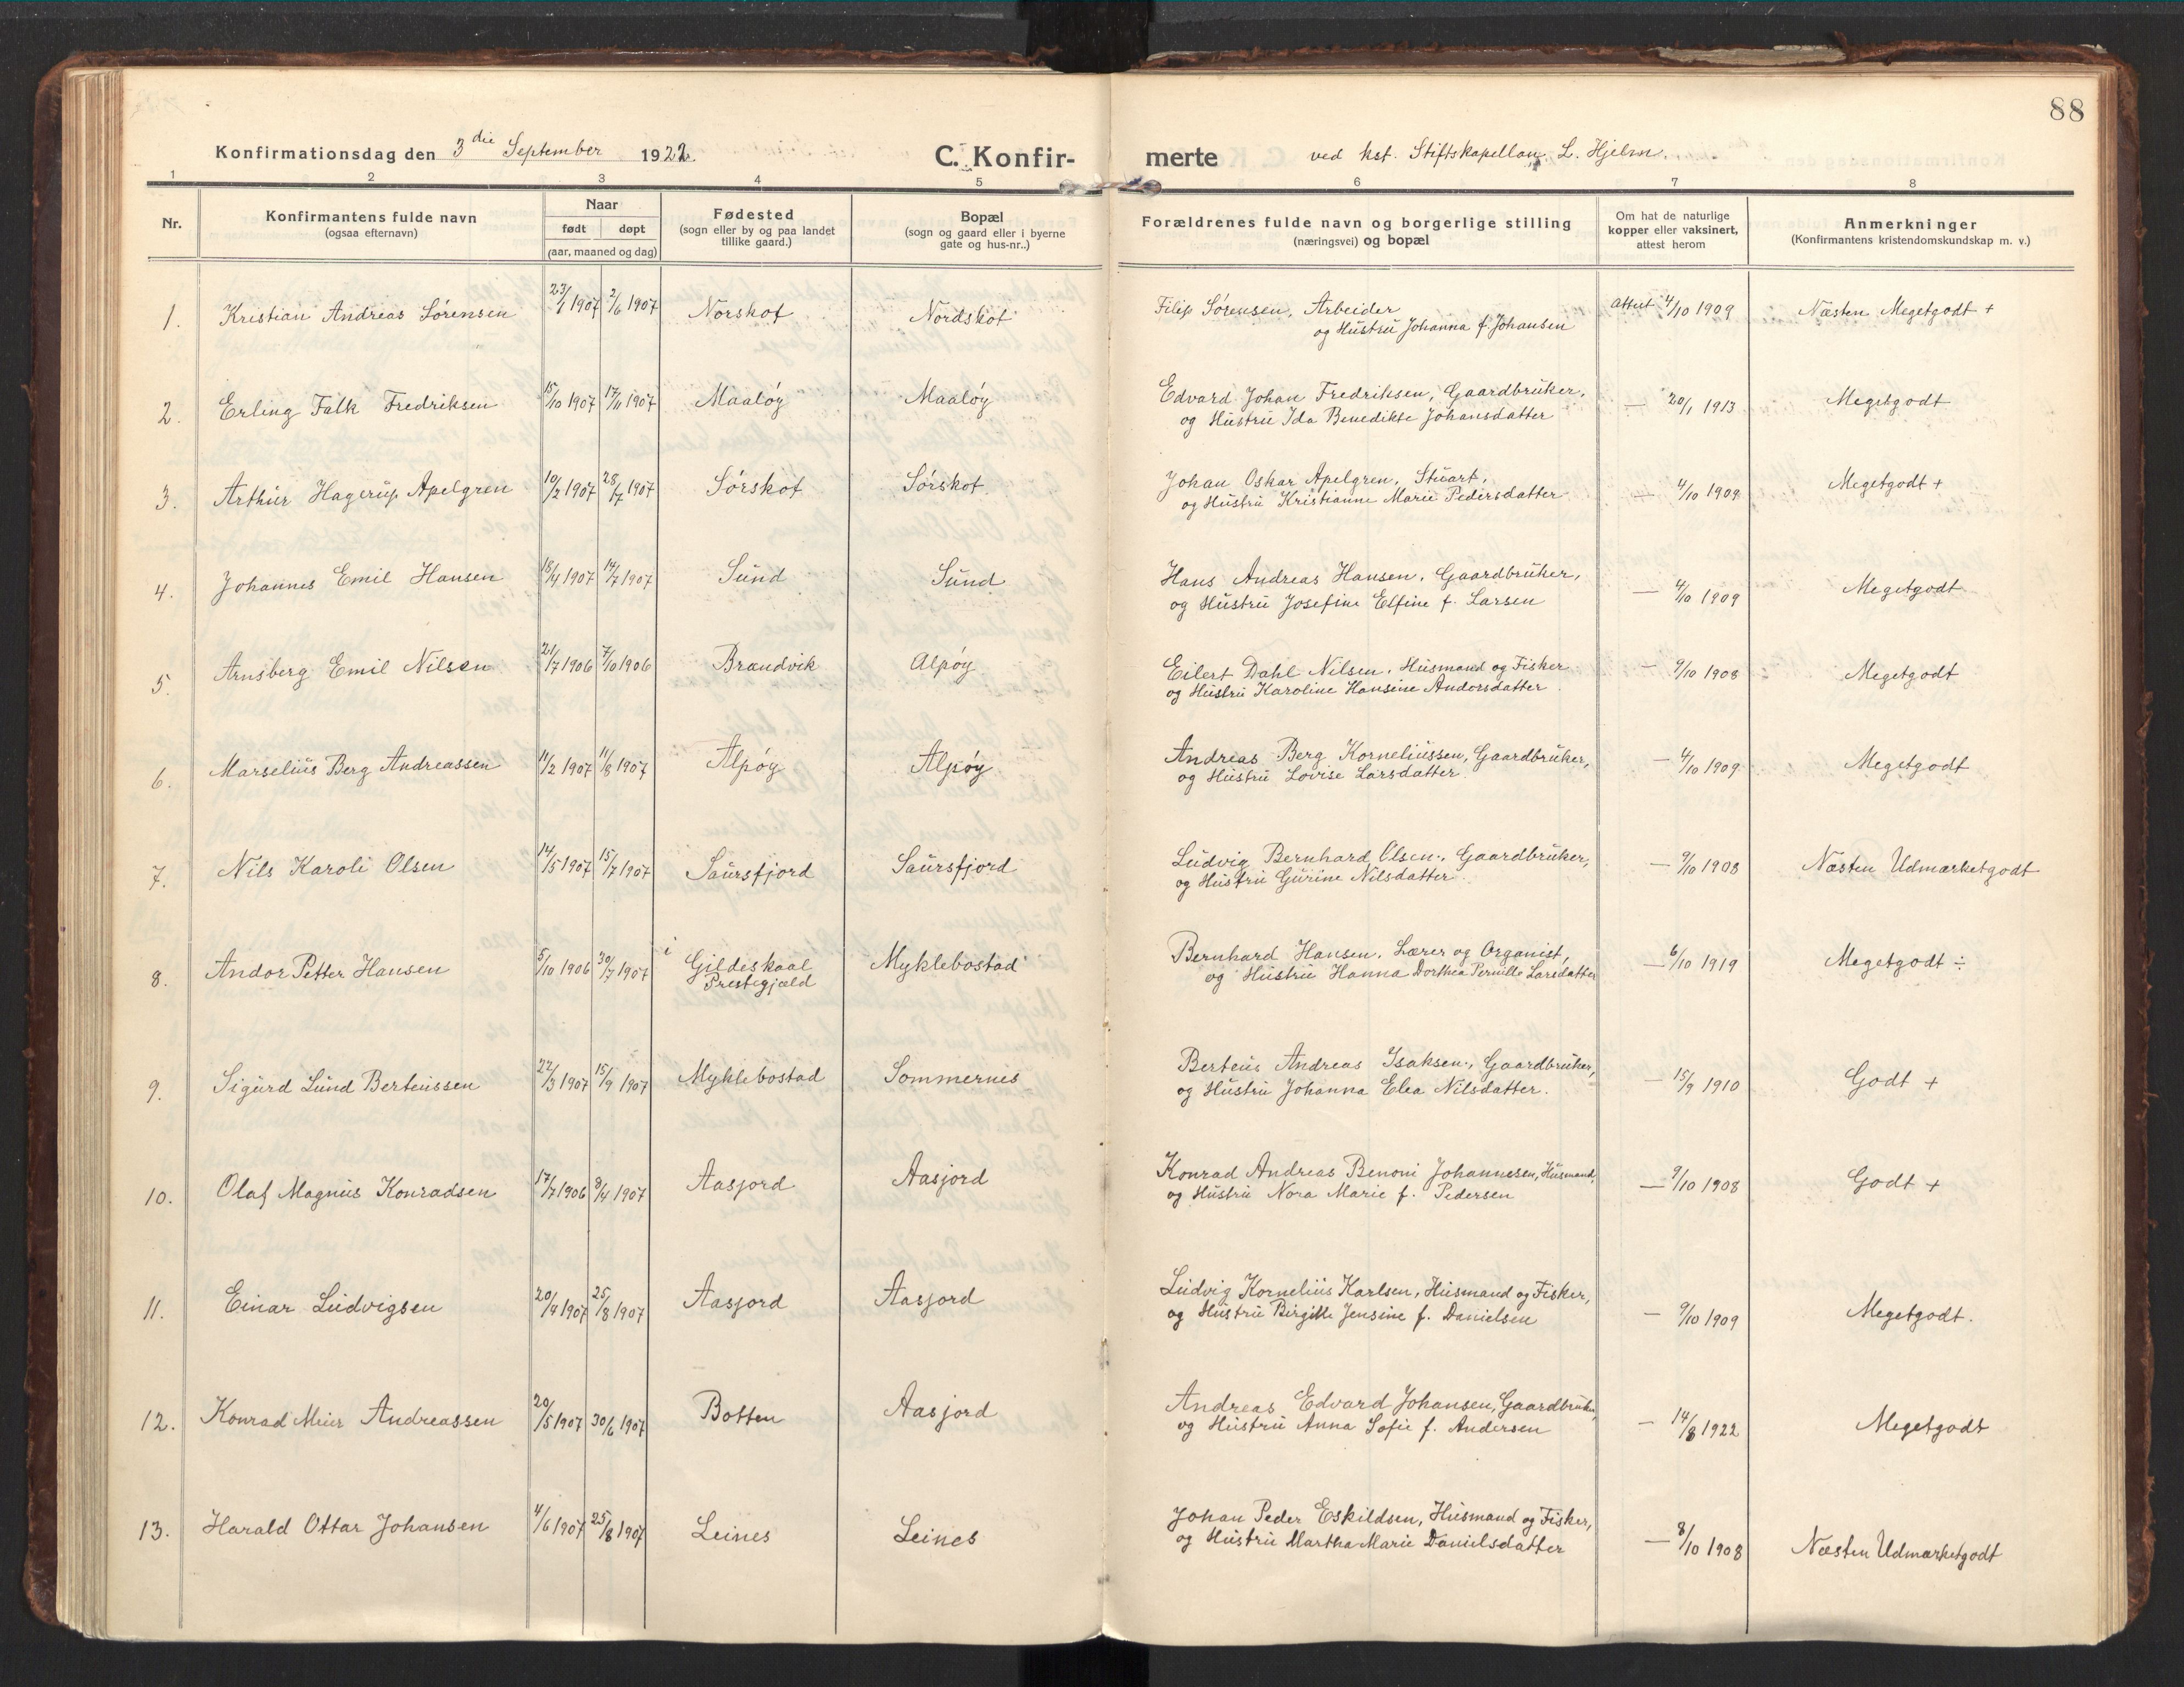 88
Konfirmationsdag den 3die September 1922. C. Konfir- merte ved kst. Stiftskapellan L. Hjelm.
1 2 3 4 5 6 7 8
Nr.
Konfirmantens fulde navn
(ogsaa efternavn)
Naar
født døpt
(aar, maaned og dag)
Fødested
(sogn eller by og paa landet
tillike gaard.)
Bopæl
(sogn og gaard eller i byerne
gate og hus-nr..)
Forældrenes fulde navn og borgerlige stilling
(næringsvei) og bopæl
Om hat de naturlige
kopper eller vaksinert,
attest herom
Anmerkninger
(Konfirmantens kristendomskundskap m. v.)
1. Kristian Andreas Sørensen 23/1 1907 2/6 1907 Norskot Nordskot Filip Sørensen, Arbeider attest 4/10 1909 Næsten Megetgodt +
og Hustru Johanna f. Johansen
2. Erling Falk Fredriksen 15/10 1907 17/11 1907 Maaløy Maaløy Edvard Johan Fredriksen, Gaardbruker, — 20/1 1913 Megetgodt
og Hustru Ida Benedikte Johansdatter
3. Arthur Hagerup Apelgren 10/2 1907 28/7 1907 Sørskot Sørskot Johan Oskar Apelgren, Stuart, — 4/10 1909 Megetgodt +
og Hustru Kristianne Marie Pedersdatter
4. Johannes Emil Hansen 18/4 1907 14/7 1907 Sund Sund Hans Andreas Hansen, Gaardbruker, — 4/10 1909 Megetgodt
og Hustru Josefine Elfine f. Larsen
5. Arnsberg Emil Nilsen 21/7 1906 7/10 1906 Brandvik Alpøy Eilert Dahl Nilsen, Husmand og Fisker — 9/10 1908 Megetgodt
og Hustru Karoline Hansine Andorsdatter
6. Marselius Berg Andreassen 11/2 1907 11/8 1907 Alpøy Alpøy Andreas Berg Korneliussen, Gaardbruker, — 4/10 1909 Megetgodt
og Hustru Lovise Larsdatter
7. Nils Karoli Olsen 14/5 1907 15/7 1907 Saursfjord Saursfjord Ludvig Bernhard Olsen, Gaardbruker, — 9/10 1908 Næsten Udmærketgodt
og Hustru Gurine Nilsdatter
8. Andor Petter Hansen 5/10 1906 30/7 1907 i Gildeskaal Myklebostad Bernhard Hansen, Lærer og Organist, — 6/10 1919 Megetgodt ÷
Prestegjæld og Hustru Hanna Dorthea Pernille Larsdatter
9. Sigurd Lund Berteussen 22/3 1907 15/9 1907 Myklebostad Sommernes Berteus Andreas Isaksen, Gaardbruker, — 15/9 1910 Godt +
og Hustru Johanna Elea Nilsdatter.
10. Olaf Magnus Konradsen 17/7 1906 9/4 1907 Aasjord Aasjord Konrad Andreas Benoni Johannesen, Husmand, — 9/10 1908 Godt +
og Hustru Nora Marie f. Pedersen
11. Einar Ludvigsen 20/4 1907 25/8 1907 Aasjord Aasjord Ludvig Kornelius Karlsen, Husmand og Fisker, — 9/10 1909 Megetgodt.
og Hustru Birgitte Jensine f. Danielsen
12. Konrad Meier Andreassen 20/5 1907 30/6 1907 Botten Aasjord Andreas Edvard Johansen, Gaardbruker, — 14/8 1922 Megetgodt
og Hustru Anna Sofie f. Andersen
13. Harald Ottar Johansen 4/6 1907 25/8 1907 Leines Leines Johan Peder Eskildsen, Husmand og Fisker, — 8/10 1908 Næsten Udmærketgodt
og Hustru Martha Marie Danielsdatter